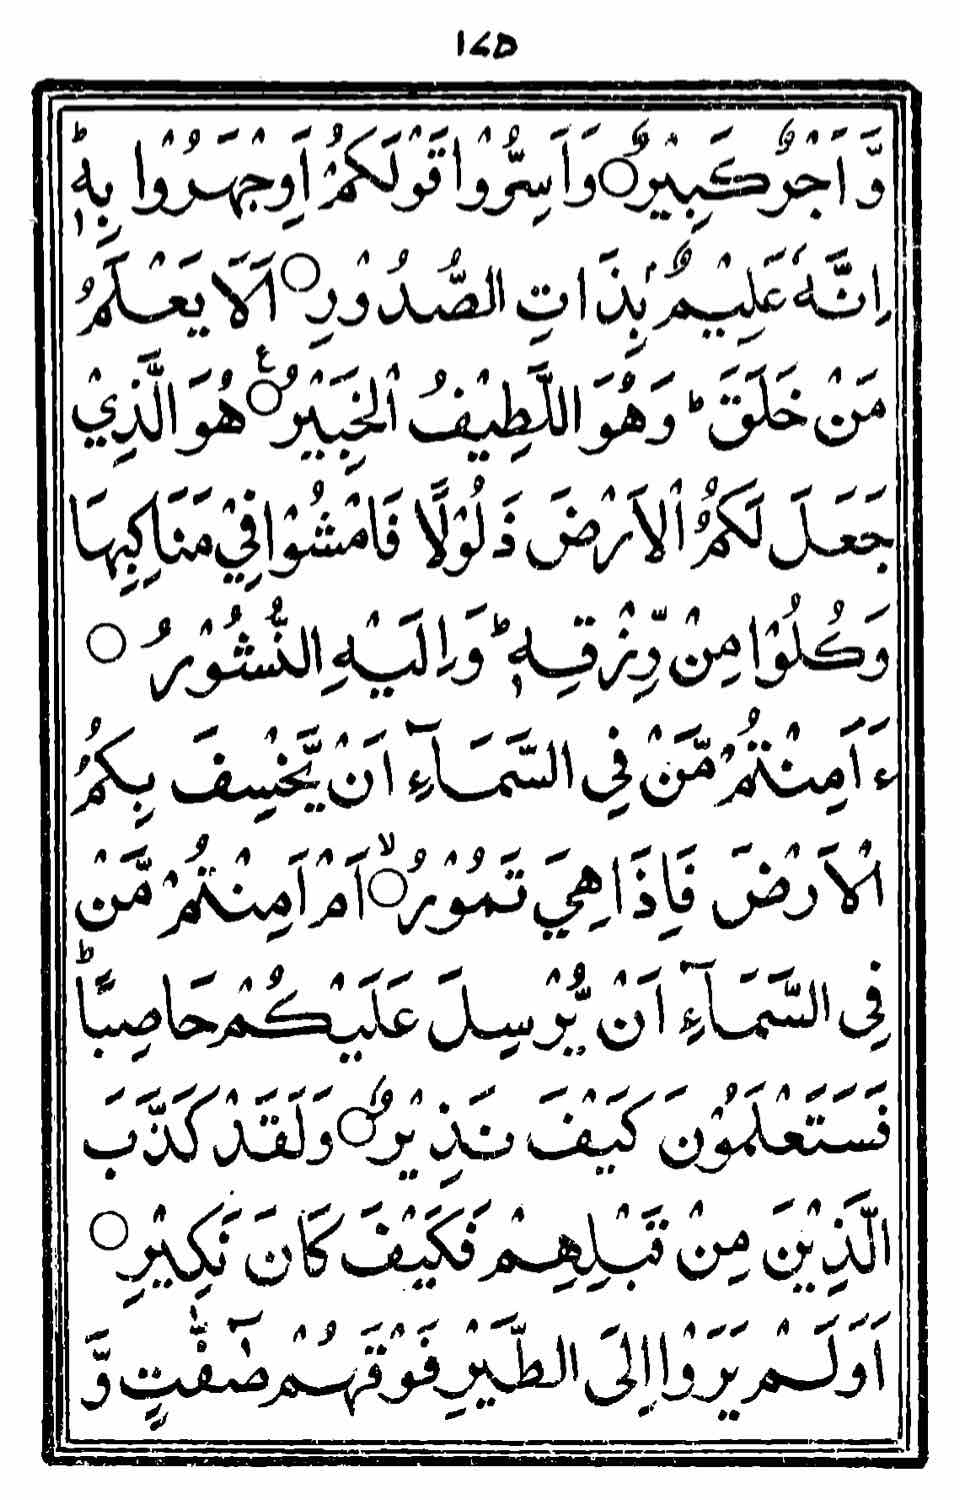 ١٧٥
وَّ اَجْرٌ كَبِيْرٌ ○ وَ اَسِرُّوْا قَوْلَكُمْ اَوِ اجْهَرُوْا بِهٖ ؕ
اِنَّهٗ عَلِيْمٌۢ بِذَاتِ الصُّدُوْرِ ○ اَلَا يَعْلَمُ
مَنْ خَلَقَ ؕ وَ هُوَ اللَّطِيْفُ الْخَبِيْرُ ○ ع هُوَ الَّذِيْ
جَعَلَ لَكُمُ الْاَرْضَ ذَلُوْلًا فَامْشُوْا فِيْ مَنَاكِبِهَا
وَ كُلُوْا مِنْ رِّزْقِهٖ ؕ وَ اِلَيْهِ النُّشُوْرُ ○
ءَاَمِنْتُمْ مَّنْ فِي السَّمَآءِ اَنْ يَّخْسِفَ بِكُمُ
الْاَرْضَ فَاِذَا هِيَ تَمُوْرُ ○ ۙ اَمْ اَمِنْتُمْ مَّنْ
فِي السَّمَآءِ اَنْ يُّرْسِلَ عَلَيْكُمْ حَاصِبًا ؕ
فَسَتَعْلَمُوْنَ كَيْفَ نَذِيْرِ ○ وَ لَقَدْ كَذَّبَ
الَّذِيْنَ مِنْ قَبْلِهِمْ فَكَيْفَ كَانَ نَكِيْرِ ○
اَوَ لَمْ يَرَوْا اِلَى الطَّيْرِ فَوْقَهُمْ صٰٓفّٰتٍ وَّ